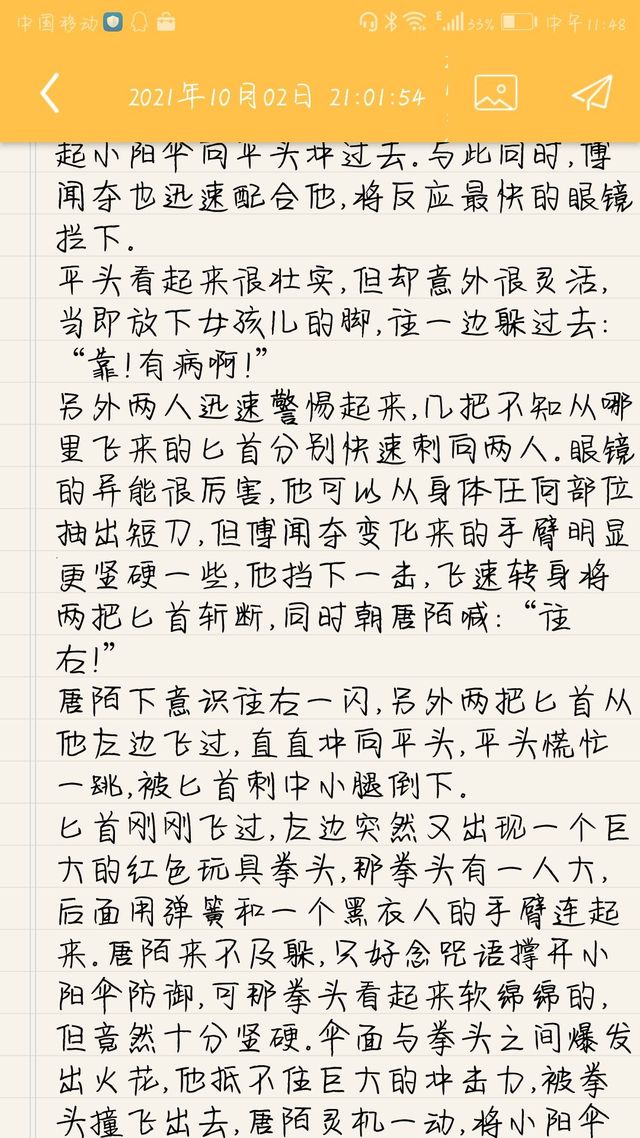 中国移动 33% 中午11:48
2021年10月02日 21:01:54
起小阳伞向平头冲过去.与此同时,傅
闻夺也迅速配合他,将反应最快的眼镜
拦下。
平头看起来很壮实,但却意外很灵活,
当即放下女孩儿的脚,往一边躲过去:
“靠!有病啊!”
另外两人迅速警惕起来,几把不知从哪
里飞来的匕首分别快速刺向两人.眼镜
的异能很厉害,他可以从身体任何部位
抽出短刀,但傅闻夺变化来的手臂明显
更坚硬一些,他挡下一击,飞速转身将
两把匕首斩断,同时朝唐陌喊:“往
右!”
唐陌下意识往右一闪,另外两把匕首从
他左边飞过,直直冲向平头,平头慌忙
一跳,被匕首刺中小腿倒下。
匕首刚刚飞过,左边突然又出现一个巨
大的红色玩具拳头,那拳头有一人大,
后面用弹簧和一个黑衣人的手臂连起
来.唐陌来不及躲,只好念咒语撑开小
阳伞防御,可那拳头看起来软绵绵的,
但竟然十分坚硬.伞面与拳头之间爆发
出火花,他抵不住巨大的冲击力,被拳
头撞飞出去,唐陌灵机一动,将小阳伞